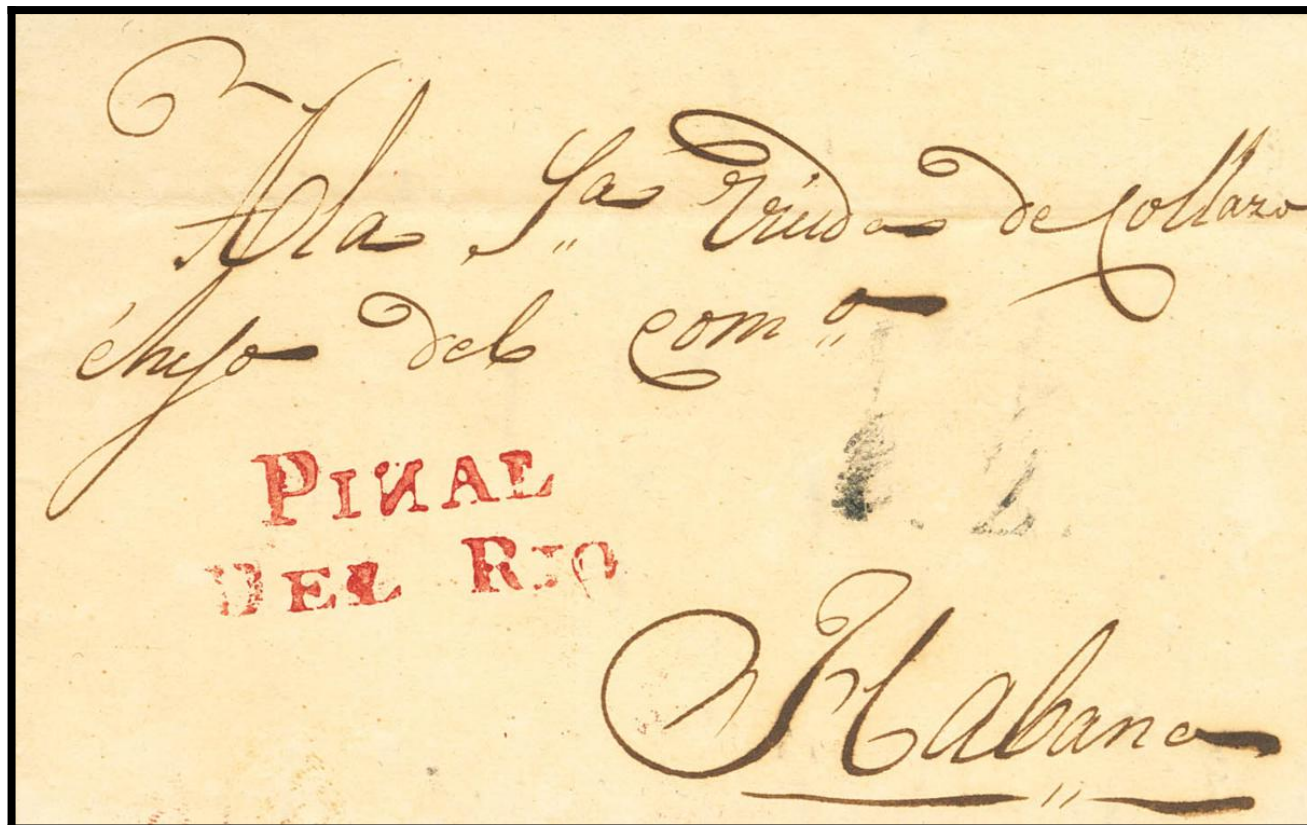 A la S,,ra Viuda de Collazo
é hijo del Com,,o
PINAL
DEL RIO
2.
Habana